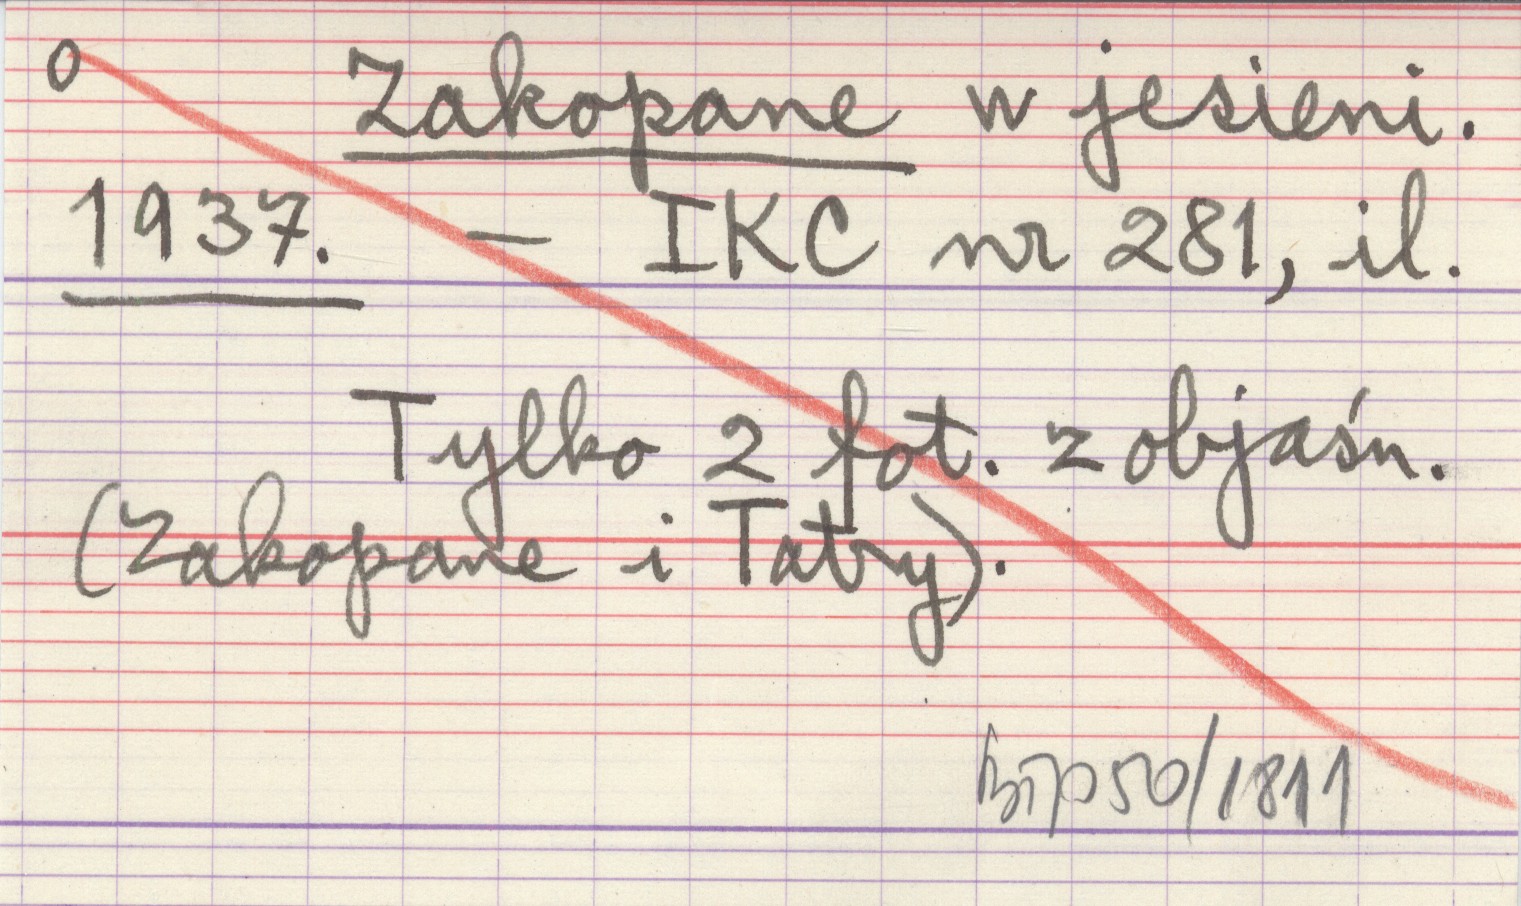 o Zakopane w jesieni.
1937. — IKC nr 281, il.
Tylko 2 fot. z objaśn.
(Zakopane i Tatry).
50/1811